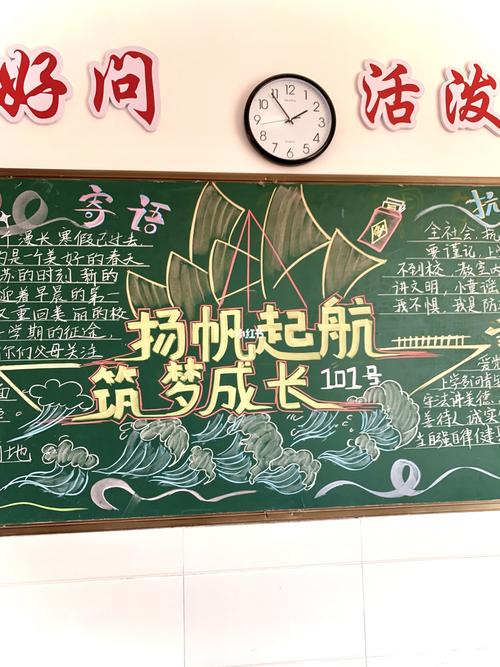 好问
活泼
12
1
2
3
4
5
6
7
8
9
10
11
寄语
漫长寒假已过去
的是一个美好的春天
苏的时刻 新的
迎着早晨的第一
又重回美丽的校
一学期的征途，
你们父母关注
面
地
扬帆起航
小红书
筑梦成长
101号
抗
全社会，抗
要谨记，上
不到校
讲文明，小
我不惧，我是防
爱党
上学到
守法讲美德
善待人 诚实
自强自律健